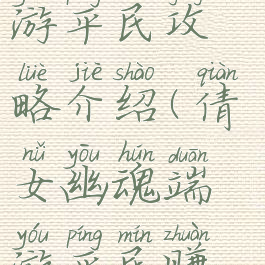 游平民攻
lüè jiē shào qiàn
略介绍(倩
nǚ yōu hún duān
女幽魂端
yóu píng mín zhuàn
游平民赚